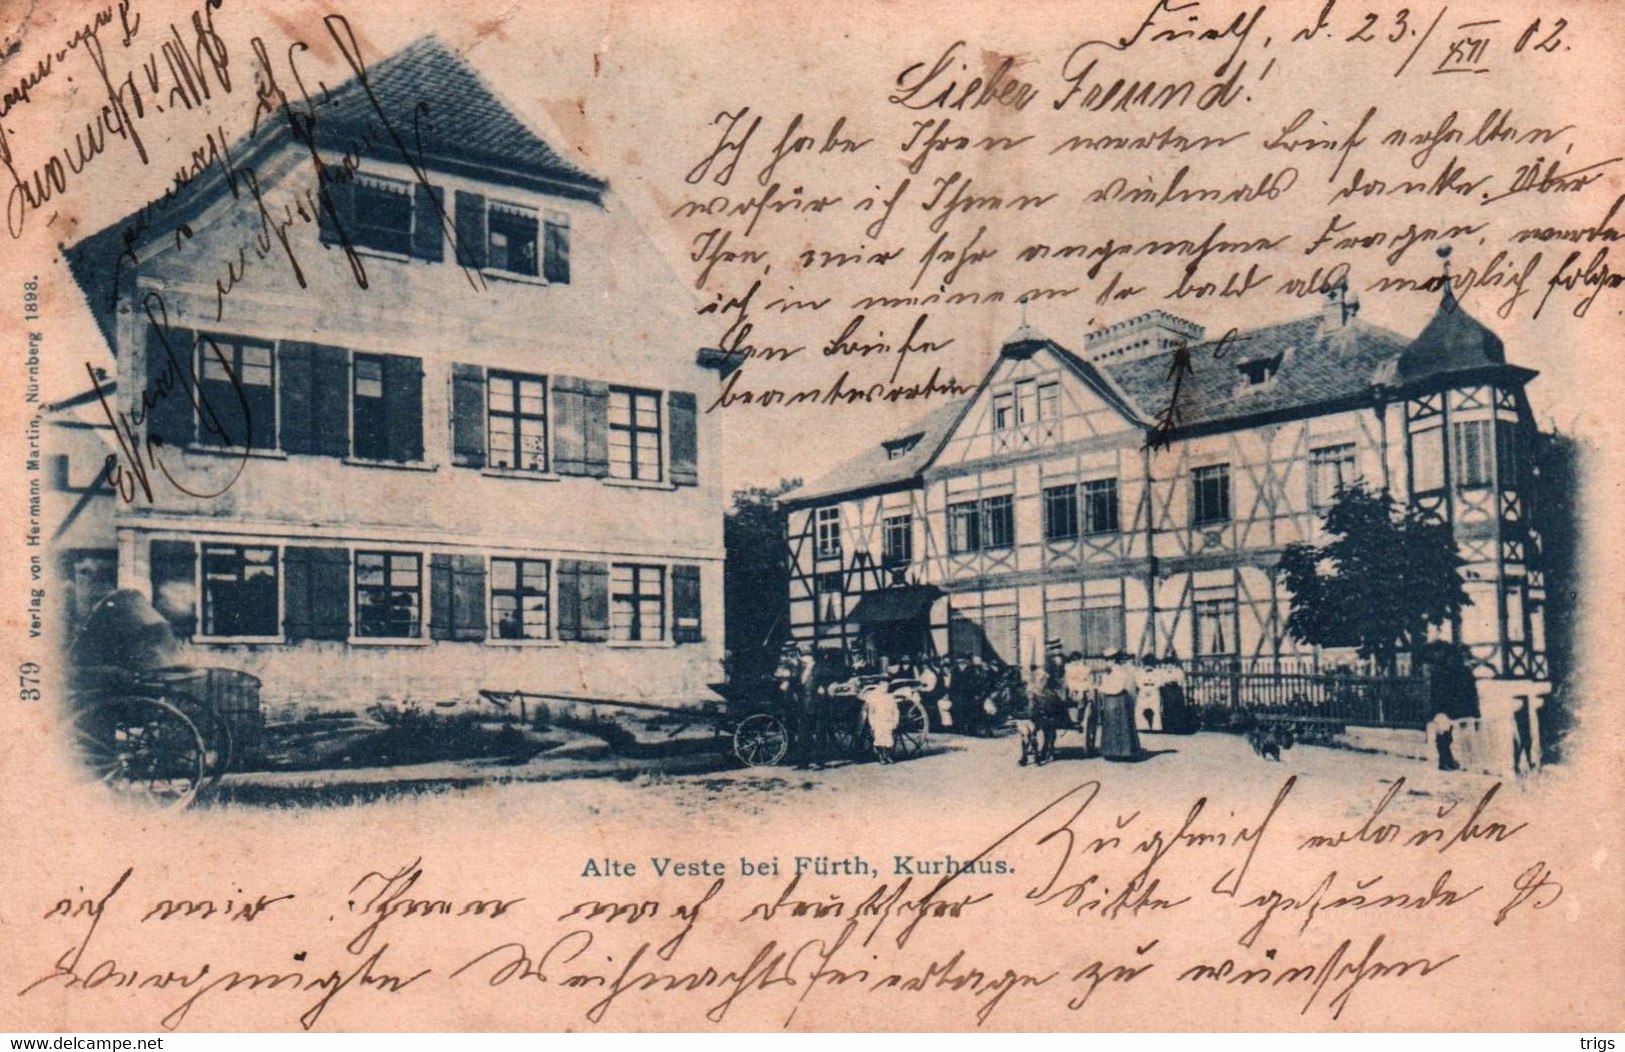 Fürth, d. 23./XII 02.
Lieber Freund!
Ich habe Ihren werten Brief erhalten,
wofür ich Ihnen vielmals danke. Über
Ihre, mir sehr angenehme Fragen, werde
ich in meinem so bald als möglich folgen
den Briefe
beantworten
379 Verlag von Hermann Martin, Nürnberg 1898.
Alte Veste bei Fürth, Kurhaus.
Zugleich erlaube
ich mir Ihnen nach deutscher Sitte gesunde &
vergnügte Weihnachtsfeiertage zu wünschen
www.delcampe.net
trigs